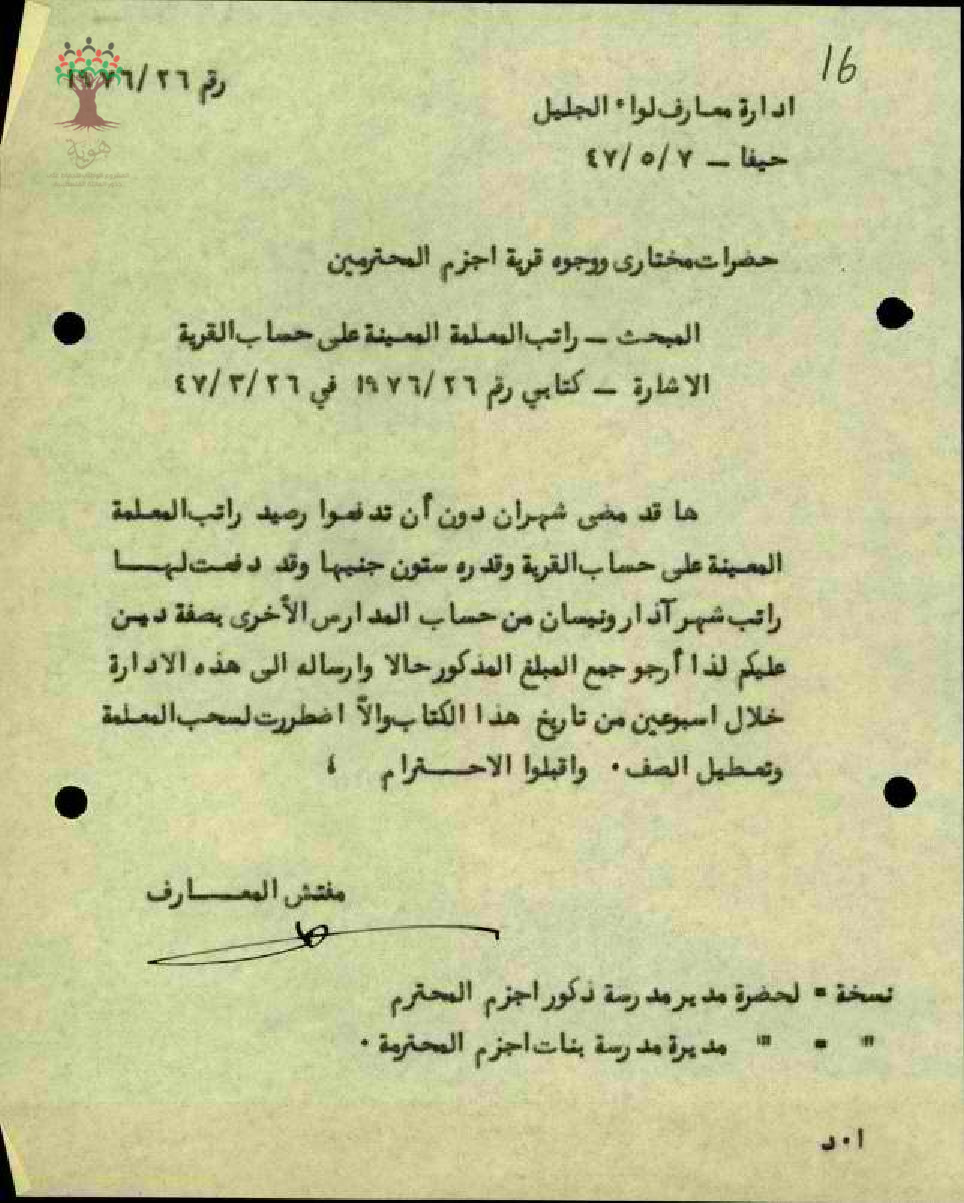 16
رقم ١٩٧٦/٢٦
ادارة معارف لواء الجليل
حيفا – ٤٧/٥/٧
هوية
حضرات مختارى ووجوه قرية اجزم المحترمين
المبحث – راتب المعلمة المعينة على حساب القرية
الاشارة – كتابي رقم ١٩٧٦/٢٦ في ٤٧/٣/٢٦
ها قد مضى شهران دون أن تدفعوا رصيد راتب المعلمة
المعينة على حساب القرية وقدره ستون جنيها وقد دفعت لهـــا
راتب شهر آذار ونيسان من حساب المدارس الأخرى بصفة ديـن
عليكم لذا أرجو جمع المبلغ المذكور حالا وارساله الى هذه الادارة
خلال اسبوعين من تاريخ هذا الكتاب والاّ اضطررت لسحب المعلمة
وتعطيل الصف ٠ واقبلوا الاحـــترام ،
مفتش المعـــارف
نسخة = لحضرة مدير مدرسة ذكور اجزم المحترم
" = " مديرة مدرسة بنات اجزم المحترمة ٠
ا ٠ د